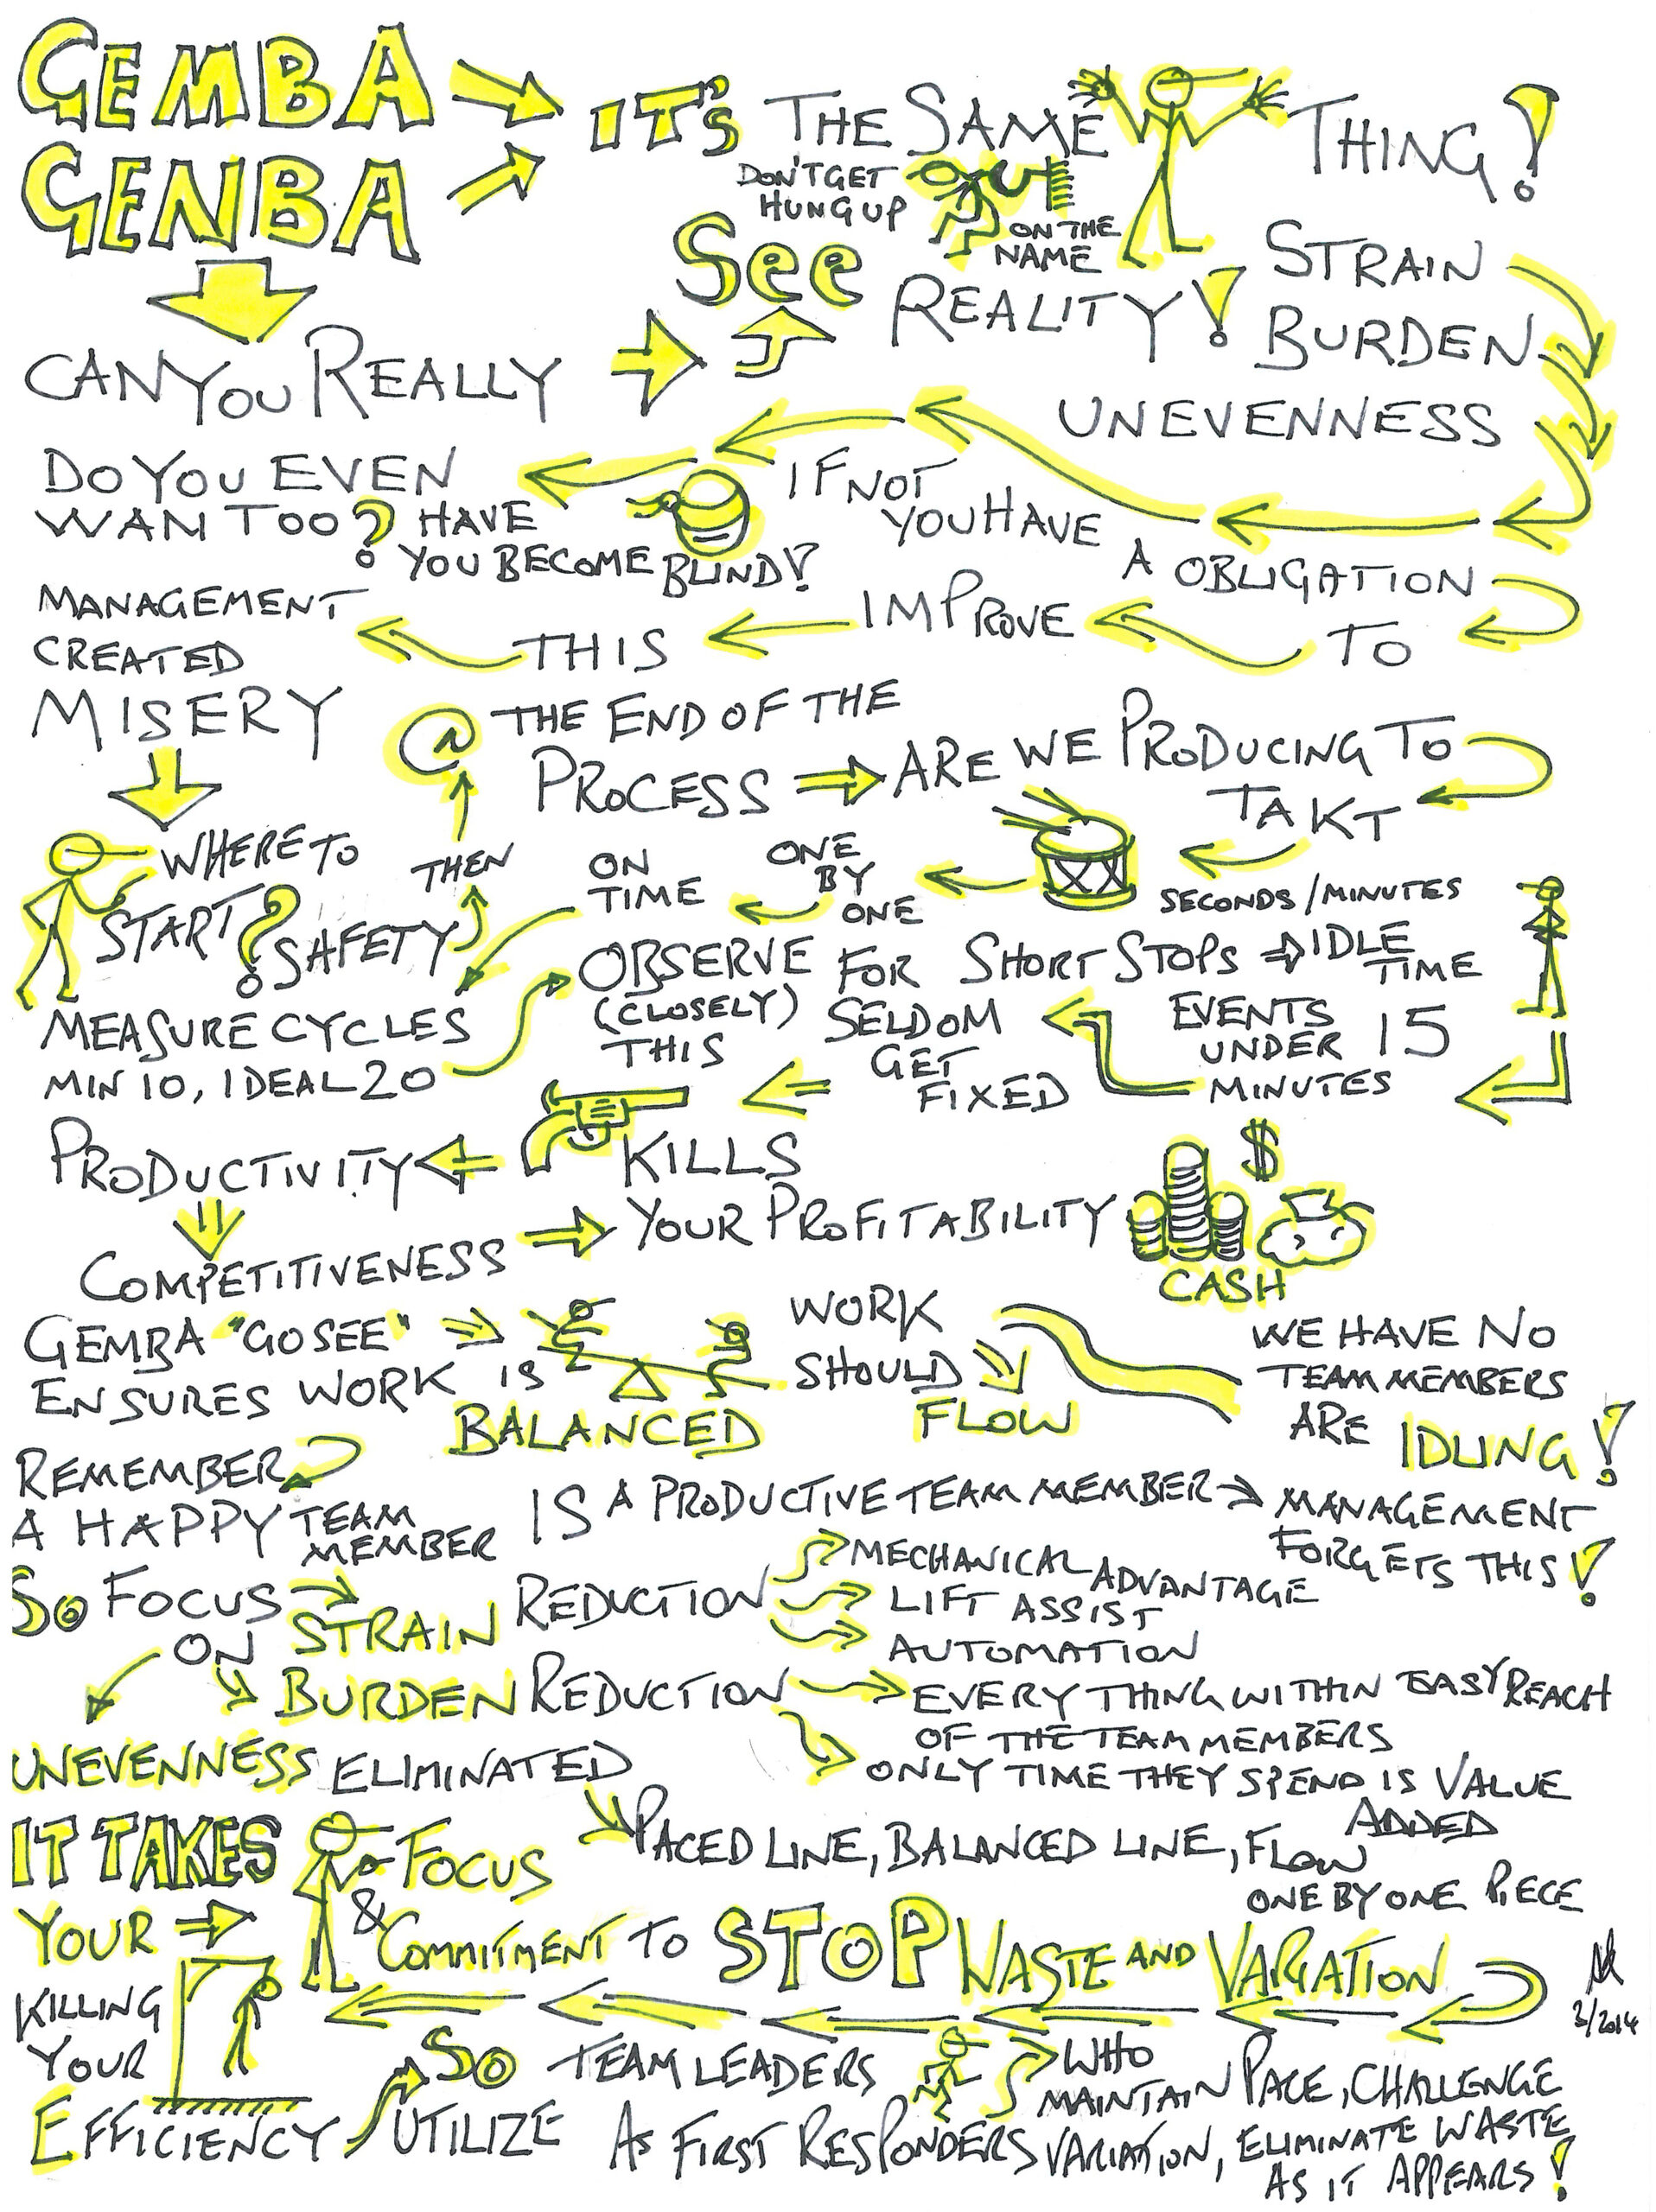 GEMBA
GENBA
IT'S THE SAME THING!
DON'T GET
HUNG UP
ON THE
NAME
CAN YOU REALLY
SEE
REALITY!
STRAIN
BURDEN
UNEVENNESS
IF NOT
YOU HAVE
A OBLIGATION
TO
IMPROVE
THIS
DO YOU EVEN
WANT TOO? HAVE
YOU BECOME BLIND!
MANAGEMENT
CREATED
MISERY
WHERE TO
START?
SAFETY
THEN
@ THE END OF THE
PROCESS
ARE WE PRODUCING TO
TAKT
SECONDS/MINUTES
ONE
BY
ONE
ON
TIME
MEASURE CYCLES
MIN 10, IDEAL 20
OBSERVE FOR SHORT STOPS IDLE
TIME
(CLOSELY)
THIS
EVENTS
UNDER 15
MINUTES
SELDOM
GET
FIXED
KILLS
PRODUCTIVITY
COMPETITIVENESS
YOUR PROFITABILITY
$
CASH
GEMBA "GO SEE"
ENSURES WORK IS
BALANCED
WORK
SHOULD
FLOW
WE HAVE NO
TEAM MEMBERS
ARE IDLING!
REMEMBER
A HAPPY TEAM
MEMBER IS A PRODUCTIVE TEAM MEMBER
MANAGEMENT
FORGETS THIS!
SO FOCUS
ON STRAIN REDUCTION
MECHANICAL ADVANTAGE
LIFT ASSIST
AUTOMATION
BURDEN REDUCTION
EVERY THING WITHIN EASY REACH
OF THE TEAM MEMBERS
ONLY TIME THEY SPEND IS VALUE
ADDED
UNEVENNESS ELIMINATED
PACED LINE, BALANCED LINE, FLOW
ONE BY ONE PIECE
IT TAKES
YOUR
FOCUS
& COMMITMENT TO STOP WASTE AND VARIATION
3/2014
KILLING
YOUR
EFFICIENCY
SO
UTILIZE
TEAM LEADERS
AS FIRST RESPONDERS
WHO
MAINTAIN PACE, CHALLENGE
VARIATION, ELIMINATE WASTE
AS IT APPEARS!